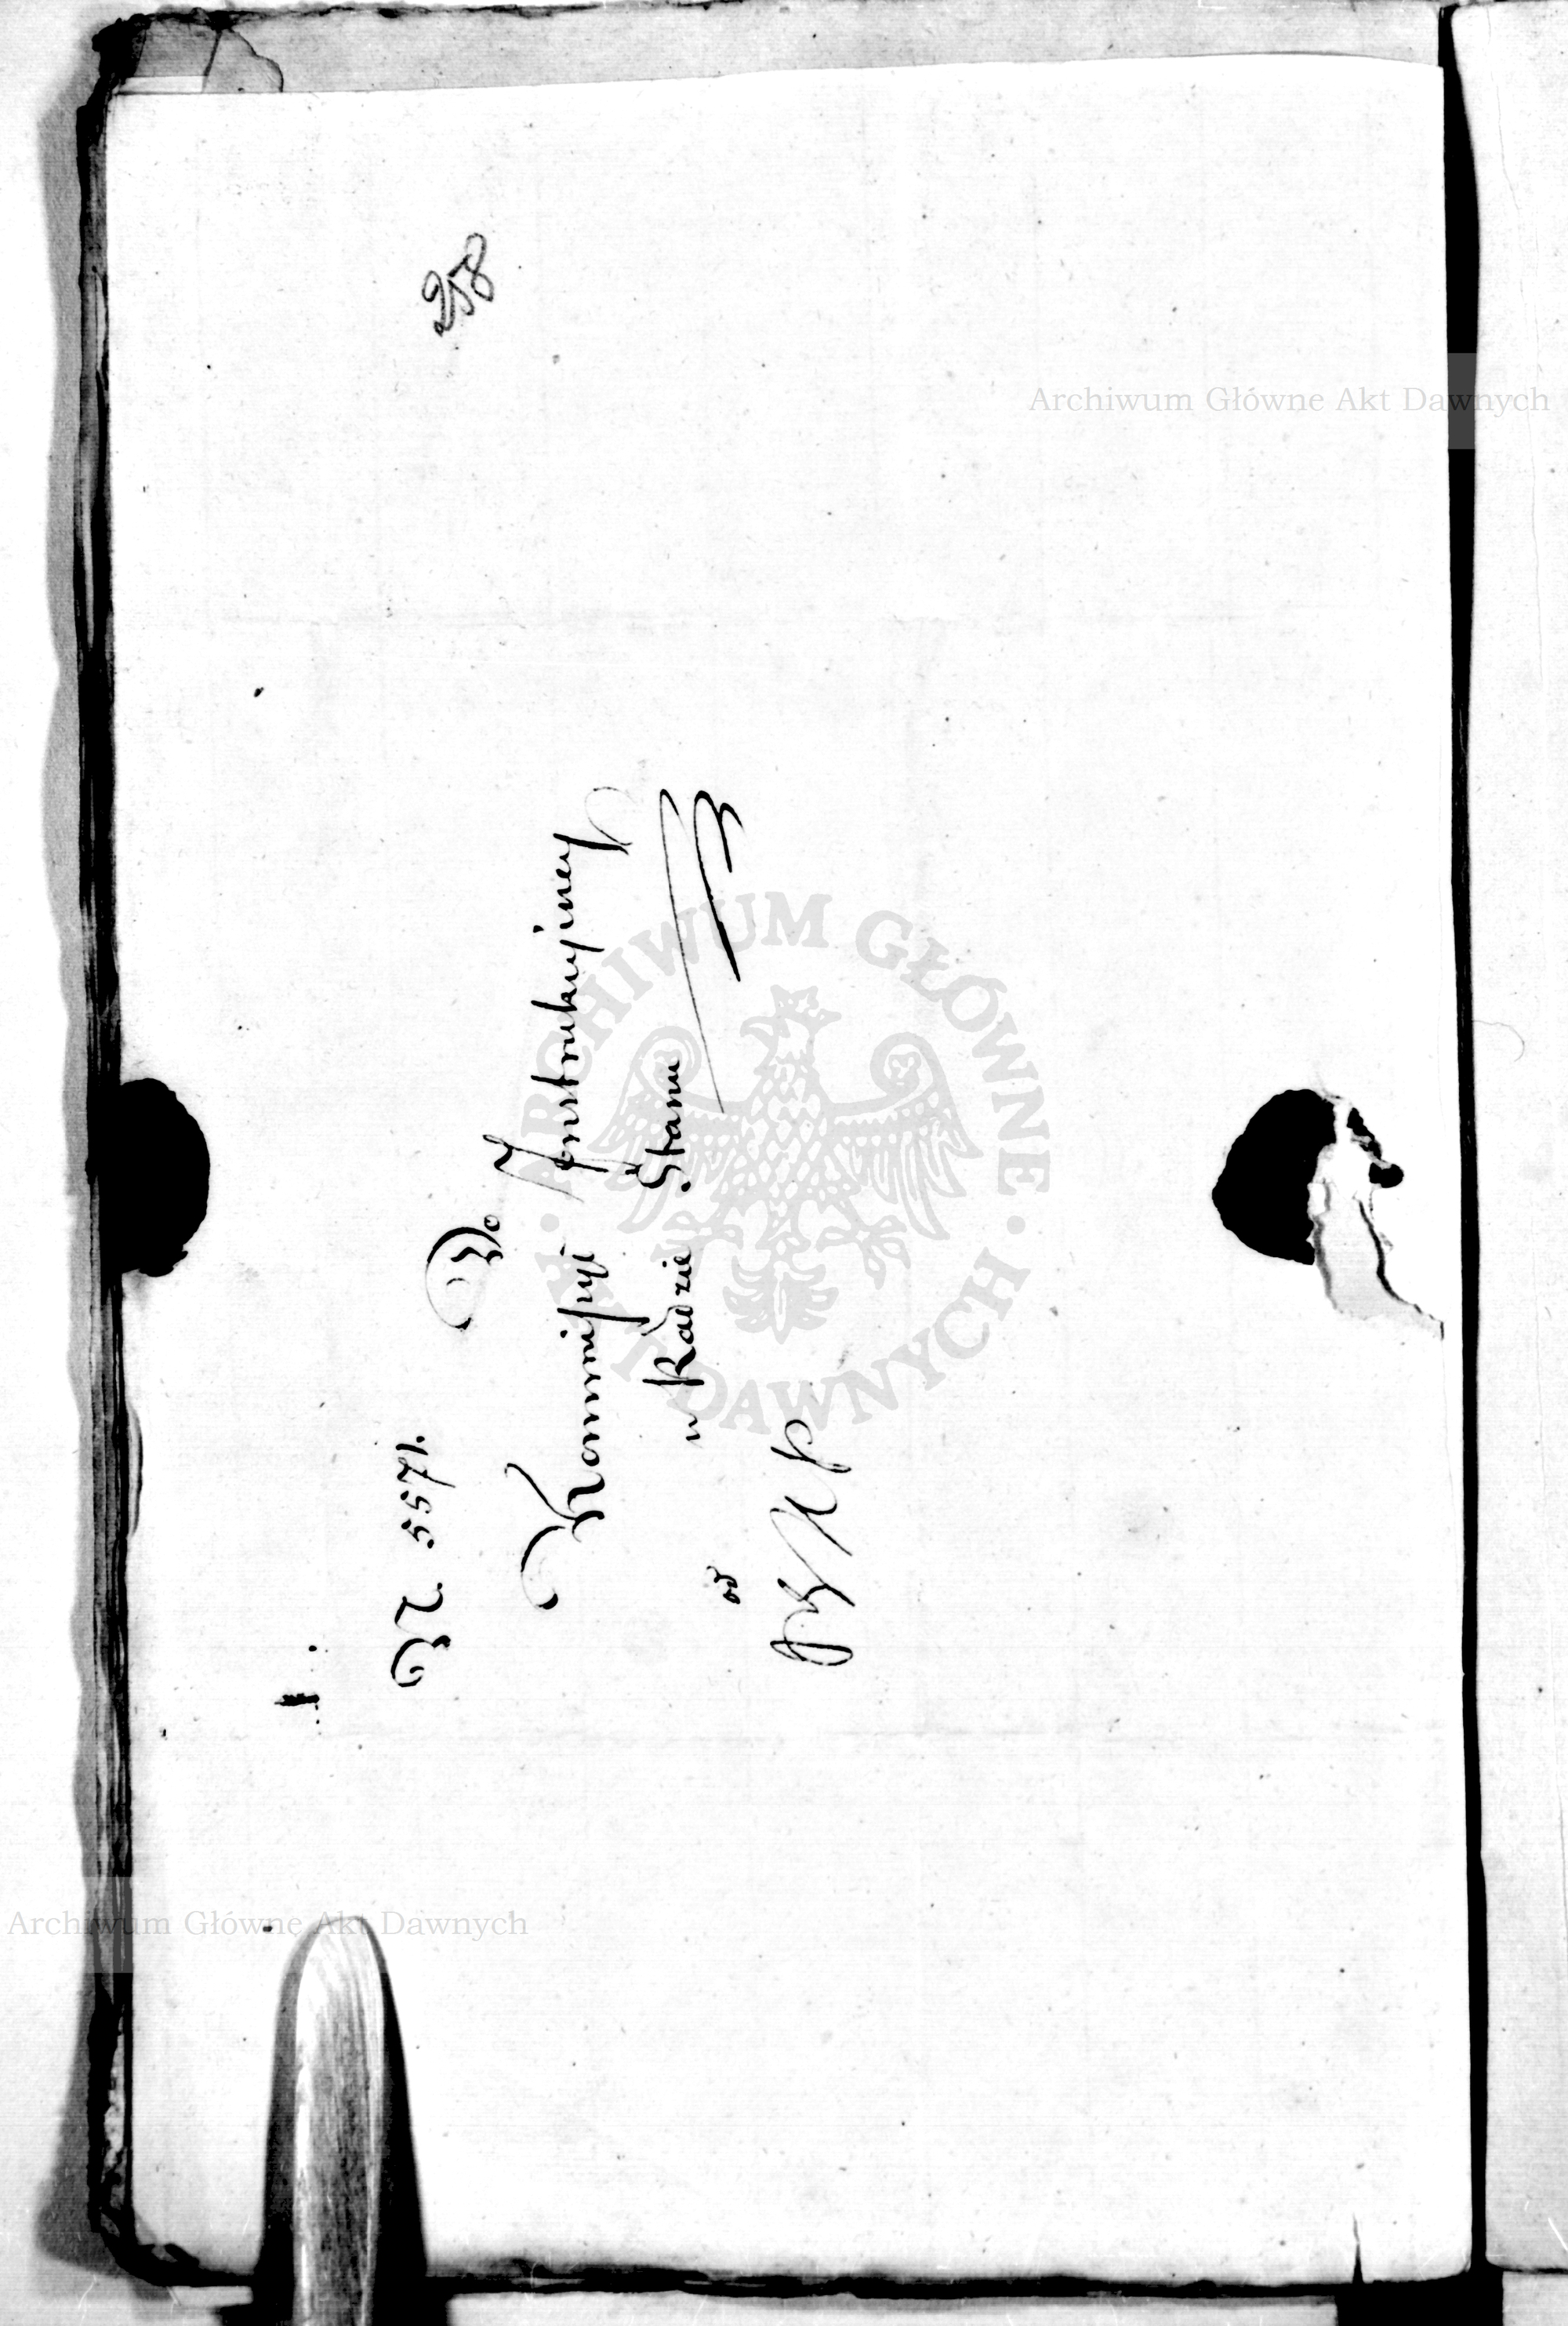 258
N 5571.
Do
Kommissyi Instrukcyiney
w Radzie Stanu
od
Archiwum Główne Akt Dawnych
ARCHIWUM GŁÓWNE · AKT DAWNYCH ·
Archiwum Główne Akt Dawnych